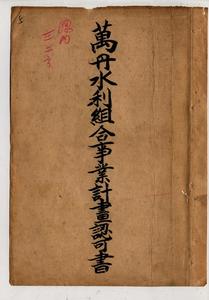 萬丹水利組合事業計畫認可書